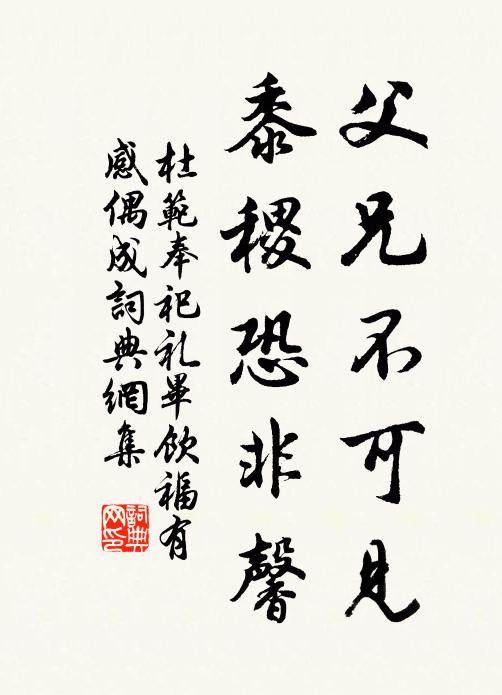 父兄不可見
黍稷恐非馨
杜範奉祀礼畢飲福有
感偶成詞典網集
詞典
网印